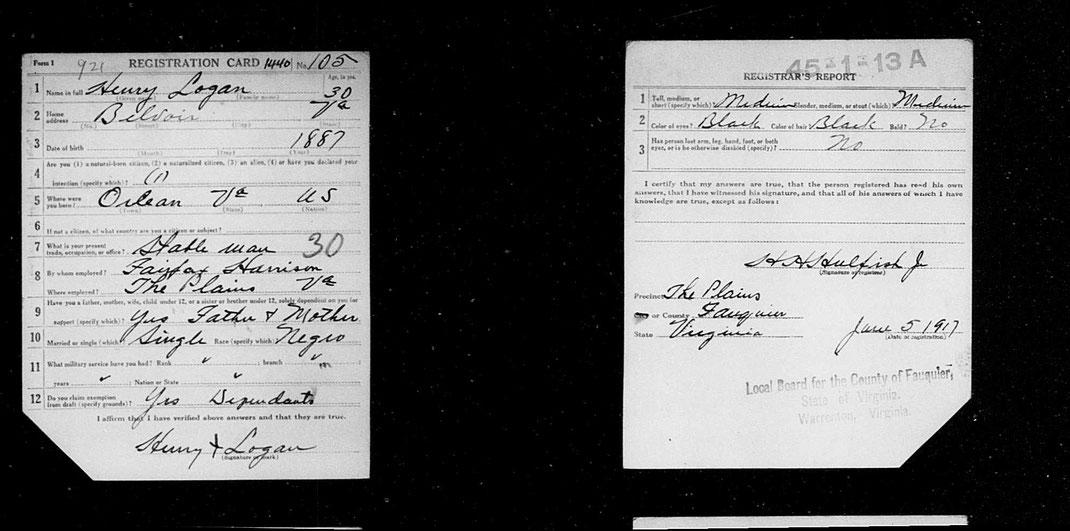 Form 1 921 REGISTRATION CARD 1440 No. 105
1 Name in full Henry Logan Age, in yrs. 30
(Given name) (Family name)
2 Home address Belvoir Va
(No.) (Street) (City) (State)
3 Date of birth 1887
(Month) (Day) (Year)
4 Are you (1) a natural-born citizen, (2) a naturalized citizen, (3) an alien, (4) or have you declared your
intention (specify which)? (1)
5 Where were you born? Orlean Va US
(Town) (State) (Nation)
6 If not a citizen, of what country are you a citizen or subject?
7 What is your present trade, occupation, or office? Stable man 30
8 By whom employed? Fairfax Harrison
Where employed? The Plains Va
9 Have you a father, mother, wife, child under 12, or a sister or brother under 12, solely dependent on you for
support (specify which)? Yes Father & Mother
10 Married or single (which) Single Race (specify which) Negro
11 What military service have you had? Rank " ; branch "
years " ; Nation or State "
12 Do you claim exemption from draft (specify grounds)? Yes Dependants
I affirm that I have verified above answers and that they are true.
Henry + Logan
(Signature or mark)
45-1-13 A
REGISTRAR'S REPORT
1 Tall, medium, or short (specify which)? Medium Slender, medium, or stout (which)? Medium
2 Color of eyes? Black Color of hair Black Bald? No
3 Has person lost arm, leg, hand, foot, or both eyes, or is he otherwise disabled (specify)? No
I certify that my answers are true, that the person registered has read his own
answers, that I have witnessed his signature, and that all of his answers of which I have
knowledge are true, except as follows:
H H Hulfish Jr
(Signature of registrar)
Precinct The Plains
City or County Fauquier
State Virginia June 5 1917
(Date of registration)
Local Board for the County of Fauquier,
State of Virginia.
Warrenton, Virginia.